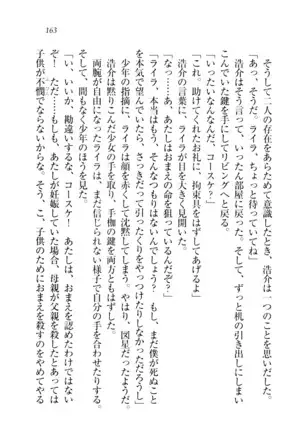 163
そうして二人の存在をあらためて意識したとき、浩介は一つのことを思いだした。
「あっ。そうだ。ライラ、ちょっと待っててね」
浩介はそう言って、いったん部屋に戻る。そして、ずっと机の引き出しにしまい
こんでいた鍵を手にしてリビングへと戻る。
「いったいなんなんだ、コースケ？」
「これ。助けてくれたお礼に、拘束具をはずしてあげるよ」
浩介の言葉に、ライラが目を大きく見開いた。
「なっ……？　あ、あたしはおまえの命を狙っているんだぞ？」
「ライラ、本当はもう、そんなつもりはないんでしょう？　もし、まだ僕が死ぬこと
を本気で望んでたら、さっきだって引ったくりをやっつけたりしなかっただろうし」
少年の指摘に、ライラは顔を赤くして沈黙してしまう。やはり、図星だったようだ。
浩介は黙りこんだ少女の手を取り、手枷の鍵を両方ともはずした。
両腕が自由になったライラは、まだ信じられない様子で自分の手を合わせたりする。
そして、間もなく少年のほうを見た。
「い、いいか、勘違いするな、コースケ！　あたしは、おまえを認めたわけではない
からな！　ただ、あたしが妊娠していた場合、母親が父親を殺したとあっては
子供が不憫でならない。そう、こ、子供のためにおまえを殺すのをやめてやる